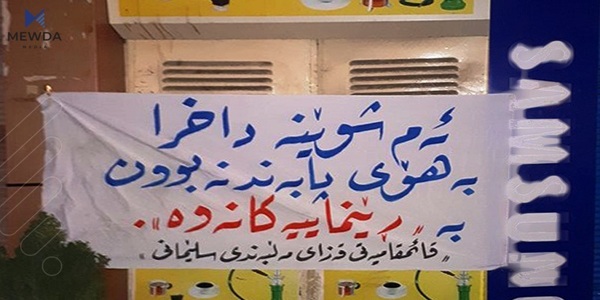 MEWDA
ئەم شوێنە داخرا
بەهۆی پابەندنەبوون
بە "ڕێنماییەکانەوە".
"قائمقامیەتی قەزای مەڵبەندی سلێمانی"
SAMSUN